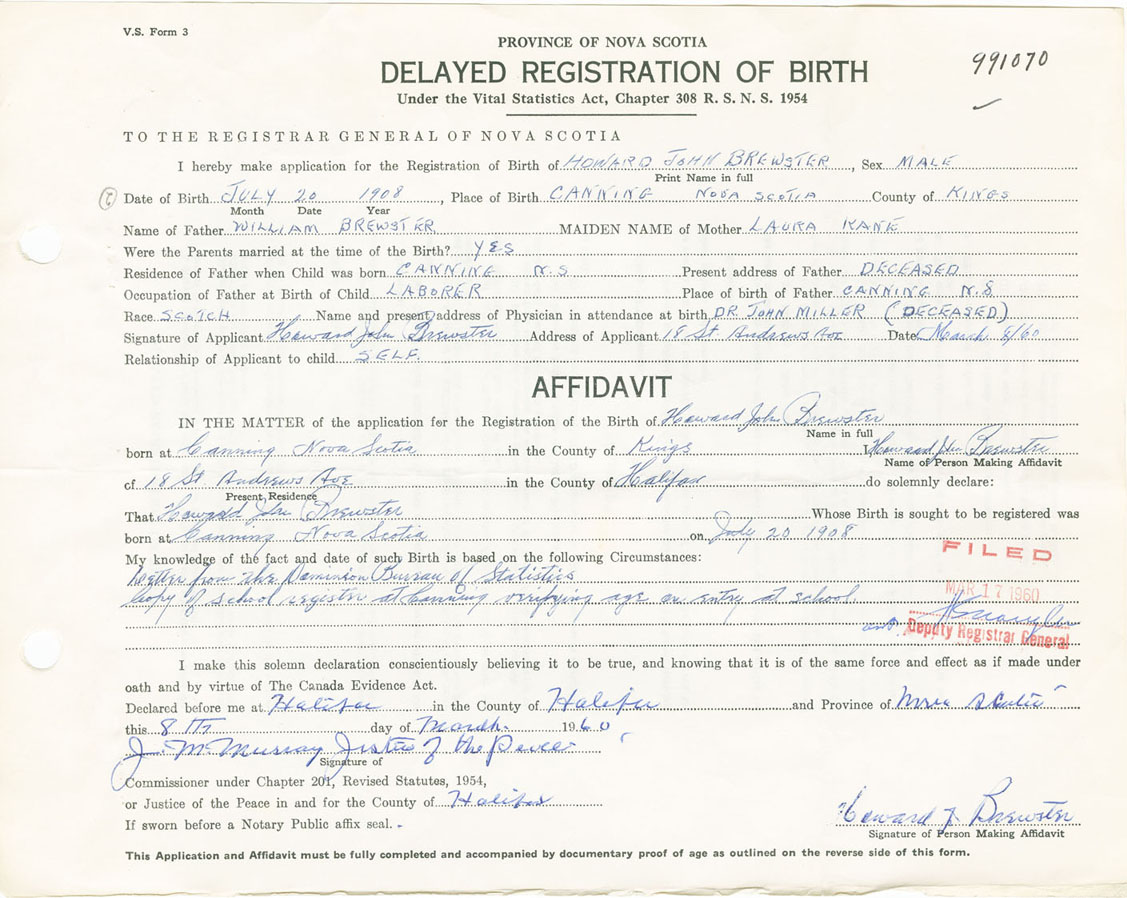 V.S. Form 3
PROVINCE OF NOVA SCOTIA
991070
DELAYED REGISTRATION OF BIRTH
Under the Vital Statistics Act, Chapter 308 R. S. N. S. 1954
TO THE REGISTRAR GENERAL OF NOVA SCOTIA
I hereby make application for the Registration of Birth of HOWARD JOHN BREWSTER, Sex MALE
Print Name in full
Date of Birth JULY 20 1908, Place of Birth CANNING NOVA SCOTIA County of KINGS
Month Date Year
Name of Father WILLIAM BREWSTER MAIDEN NAME of Mother LAURA KANE
Were the Parents married at the time of the Birth? YES
Residence of Father when Child was born CANNING N.S Present address of Father DECEASED
Occupation of Father at Birth of Child LABORER Place of birth of Father CANNING N.S
Race SCOTCH Name and present address of Physician in attendance at birth DR. JOHN MILLER (DECEASED)
Signature of Applicant Howard John Brewster Address of Applicant 18 St Andrews Ave Date March 8/60
Relationship of Applicant to child SELF
AFFIDAVIT
IN THE MATTER of the application for the Registration of the Birth of Howard John Brewster
Name in full
born at Canning Nova Scotia in the County of Kings I Howard John Brewster
Name of Person Making Affidavit
of 18 St Andrews Ave in the County of Halifax do solemnly declare:
Present Residence
That Howard John Brewster Whose Birth is sought to be registered was
born at Canning Nova Scotia on July 20 1908
My knowledge of the fact and date of such Birth is based on the following Circumstances:
FILED
Letter from the Dominion Bureau of Statistics
Copy of school register at Canning verifying age on entry at school.
MAR 17 1960
Deputy Registrar General
I make this solemn declaration conscientiously believing it to be true, and knowing that it is of the same force and effect as if made under
oath and by virtue of The Canada Evidence Act.
Declared before me at Halifax in the County of Halifax and Province of Nova Scotia
this 8th day of March 1960
J. M Murray Justice of the Peace
Signature of
Commissioner under Chapter 201, Revised Statutes, 1954,
or Justice of the Peace in and for the County of Halifax
If sworn before a Notary Public affix seal.
Howard J Brewster
Signature of Person Making Affidavit
This Application and Affidavit must be fully completed and accompanied by documentary proof of age as outlined on the reverse side of this form.